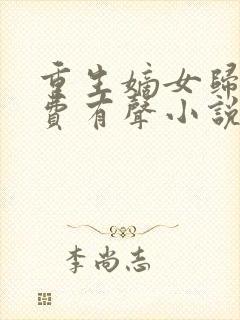 重生嫡女歸
費有聲小說
李尚志